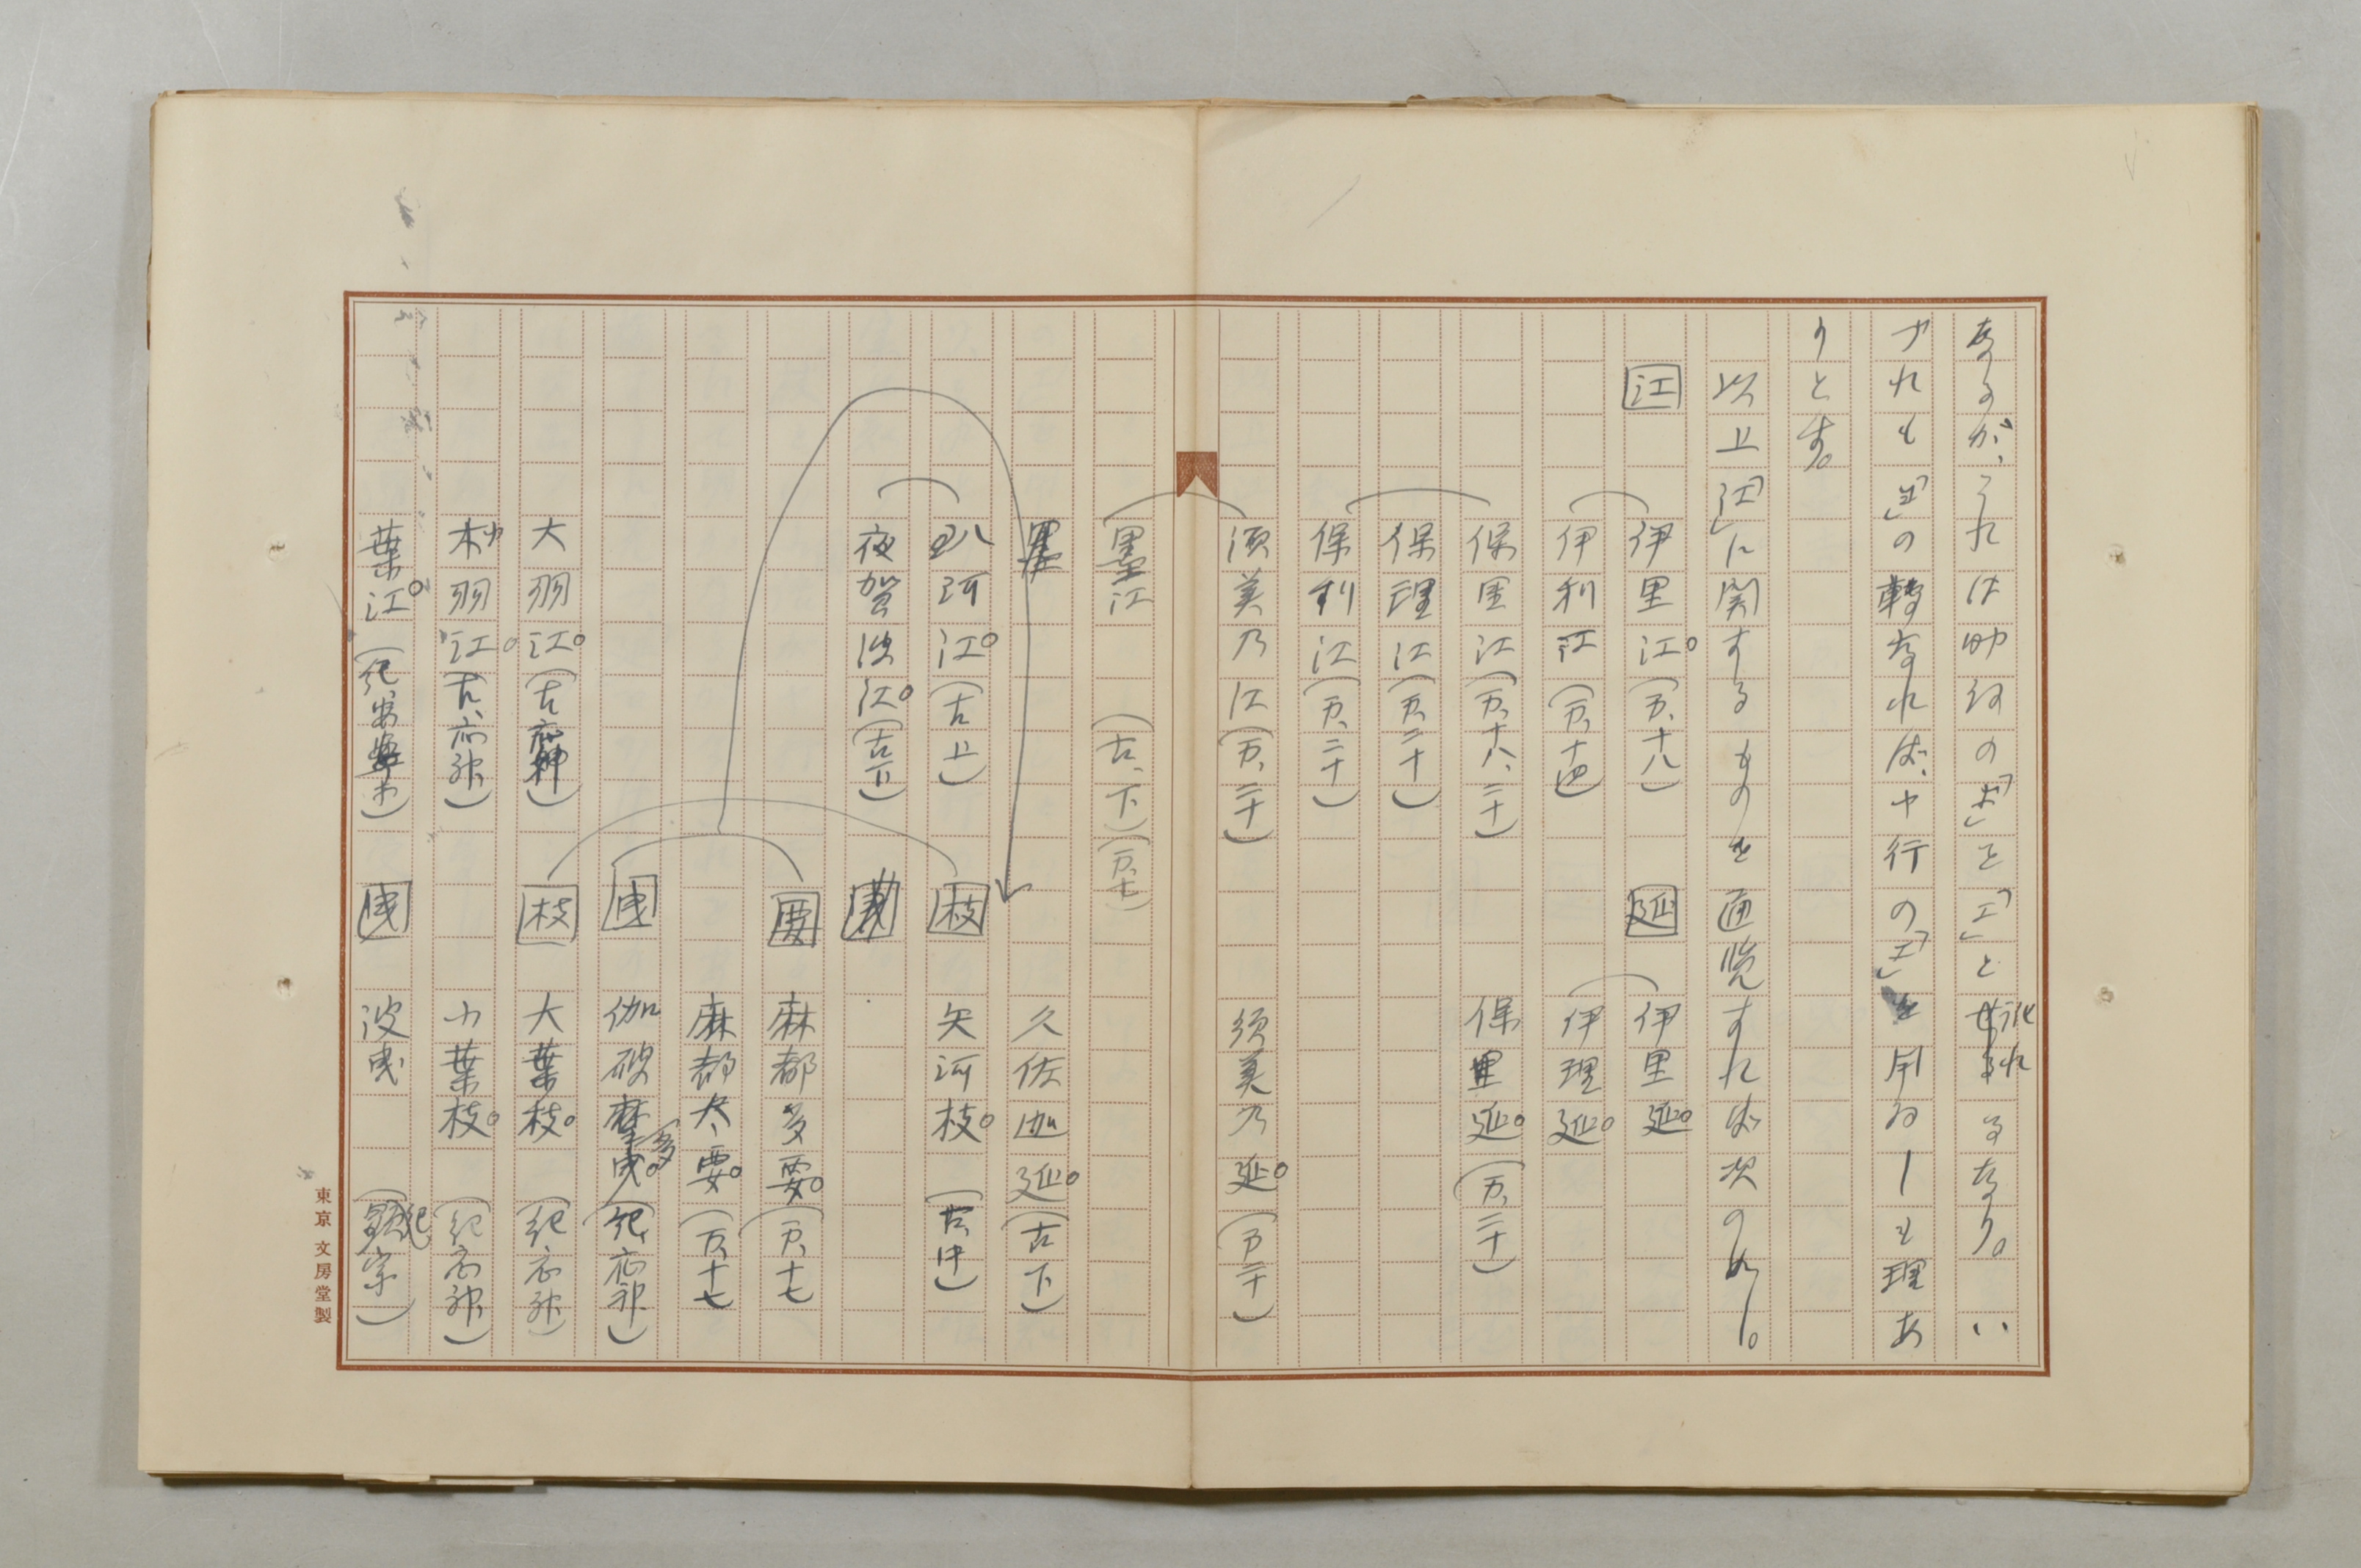 なるが、これは助詞の「よ」を「エ」と訛れるなり。い
づれも「ヨ」の轉なれば、ヤ行の「エ」を用ゐしも理あ
りとす。
以上「江」に関するものを通覧すれば次の如し。
江 伊里江(万、十八) 延 伊里延
伊利江(万、十四) 伊理延
保里江(万、十八、二十) 保里延(万、二十)
保理江(万、二十)
保利江(万、二十)
須美乃江(万、二十) 須美乃延(万、二十)
墨江(古、下)(万、七)
久佐迦延(古、下)
河江(古、上) 枝 矢河枝(古、中)
夜賀波江(古、下)
要 麻都多要(万、十七
麻都太要(万、十七
曳 伽破摩多曳(紀、応神)
大羽江(古、応神) 枝 大葉枝(紀、応神)
小羽江(古、応神) 小葉枝(紀、応神)
葉江(紀、安寧) 曳 波曳(紀、顕宗)
東京 文房堂製